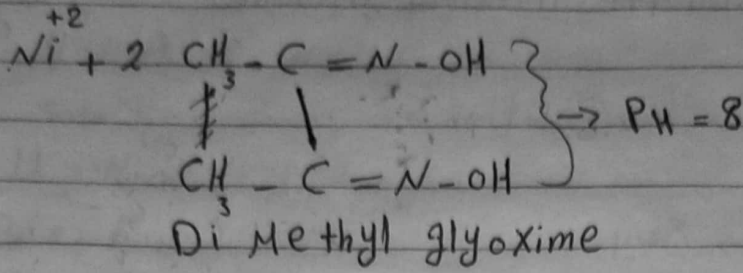 Ni+2 + 2 CH3 - C = N - OH
CH3 - C = N - OH
} → PH = 8
Di Methyl glyoxime